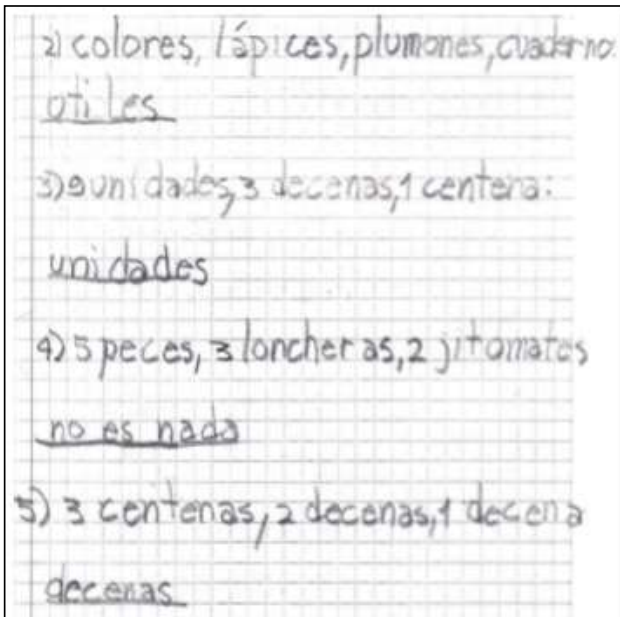 2) colores, lápices, plumones, cuaderno:
utiles
3) 9 unidades, 3 decenas, 1 centena:
unidades
4) 5 peces, 3 loncheras, 2 jitomates
no es nada
5) 3 centenas, 2 decenas, 1 decena
decenas